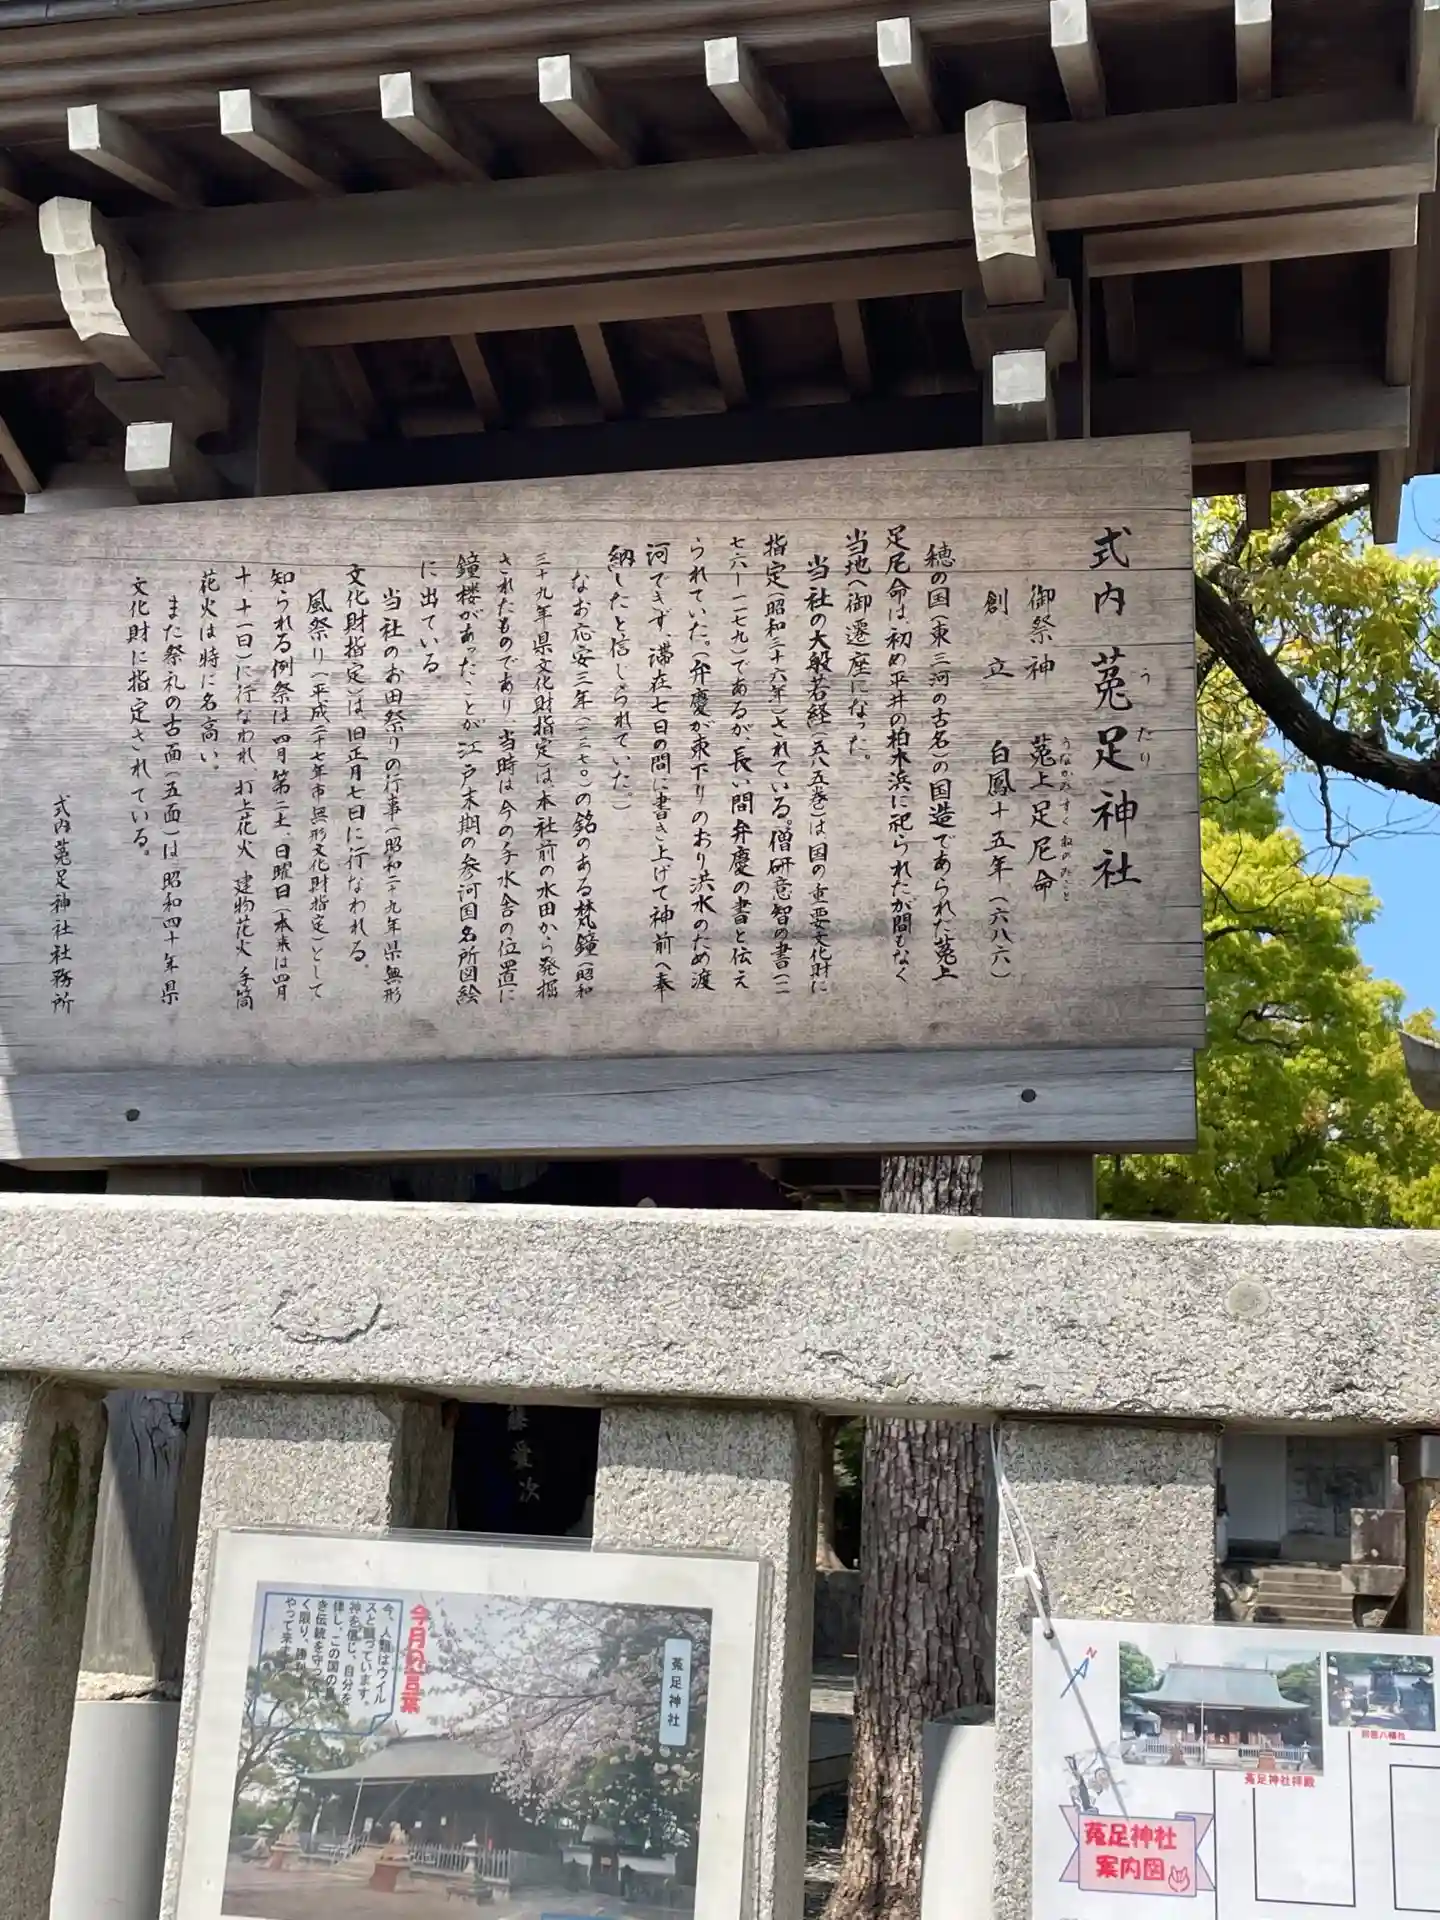 式内 菟足神社
う たり
御祭神 菟上足尼命
うなかみすくねのみこと
創立 白鳳十五年(六八六)
穂の国(東三河の古名)の国造であられた菟上
足尼命は、初め平井の柏木浜に祀られたが間もなく
当地へ御遷座になった。
当社の大般若経(五八五巻)は国の重要文化財に
指定(昭和三十六年)されている。僧研意智の書(一一
七六ー一一七九)であるが長い間弁慶の書と伝え
られていた。(弁慶が東下りのおり洪水のため渡
河できず、滞在七日の間に書き上げて神前へ奉
納したと信じられていた。)
なお応安三年(一三七〇)の銘のある梵鐘(昭和
三十九年県文化財指定)は本社前の水田から発掘
されたものであり、当時は今の手水舎の位置に
鐘楼があったことが江戸末期の参河国名所図絵
に出ている。
当社のお田祭りの行事(昭和二十九年県無形
文化財指定)は、旧正月七日に行なわれる。
風祭り(平成二十七年市無形文化財指定)として
知られる例祭は四月第二土、日曜日(本来は四月
十、十一日)に行なわれ、打上花火、建物花火、手筒
花火は特に名高い。
また祭礼の古面(五面)は、昭和四十年県
文化財に指定されている。
式内菟足神社社務所
菟足神社
今月の言葉
今、人類はウイル
スと闘っています。
神を信じ、自分を
律し、この国の
き伝統を守って
く限り、勝利
やって来ま
N
菟足神社拝殿
菟足神社
案内図